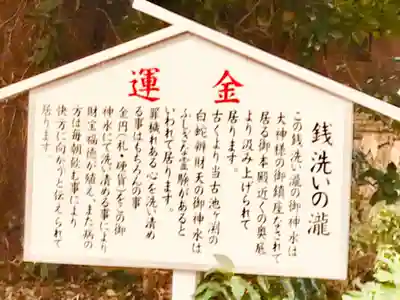 金運
銭洗いの瀧
この銭洗い瀧の御神水は
大神様の御鎮座なされて
居る御本殿近くの奥庭
より汲み上げられて
居ります。
古くより当古池ヶ渕の
白蛇辨財天の御神水は
ふしぎな霊験があると
いわれて居ります。
罪穢れある心を洗い清め
る事はもちろんの事
金円(札・硬貨)をこの御
神水にて洗い清める事により
財宝福徳が殖え、また病の
方は毎朝飲む事により
快方に向かうと伝えられて
居ります。